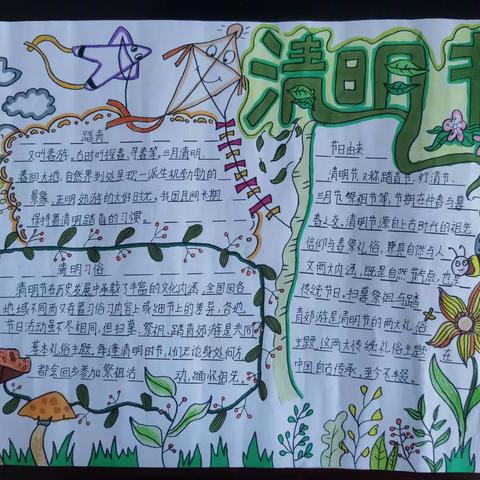 清明节
踏青
又叫春游。古时叫探春、寻春等。三月清明,
春回大地,自然界到处呈现一派生机勃勃的
景象,正明郊游的大好时光。我国民间长期
保持着清明踏青的习惯。
清明习俗
清明节在历史发展中承载了丰富的文化内涵,全国因各
地域不同而又在着习俗习内容上或细节上的差异,各地
节日活动虽不尽相同,但扫墓、祭祖、踏青郊游是共同
基本礼俗主题。每逢清明时节,人们无论身处何方
都会回乡参加祭祖活动,缅怀祖先。
节日由来
清明节又称踏青节、行清节、
三月节、祭祖节等,节期在仲春与暮
春之交。清明节源自上古时代的祖先
信仰与春祭礼俗,兼具自然与人
文两大内涵,既是自然节气点,也是
传统节日。扫墓祭祖与踏
青郊游是清明节的两大礼俗
主题,这两大传统礼俗主题在
中国自古传承,至今不辍。